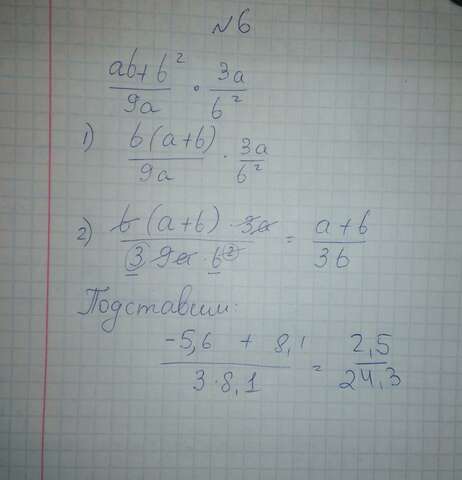 №6
(ab+b²)/(9a) · (3a)/(b²)
1) (b(a+b))/(9a) · (3a)/(b²)
2) (b(a+b) · 3a)/(3 9a · b²) = (a+b)/(3b)
Подставим:
(-5,6 + 8,1)/(3·8,1) = (2,5)/(24,3)